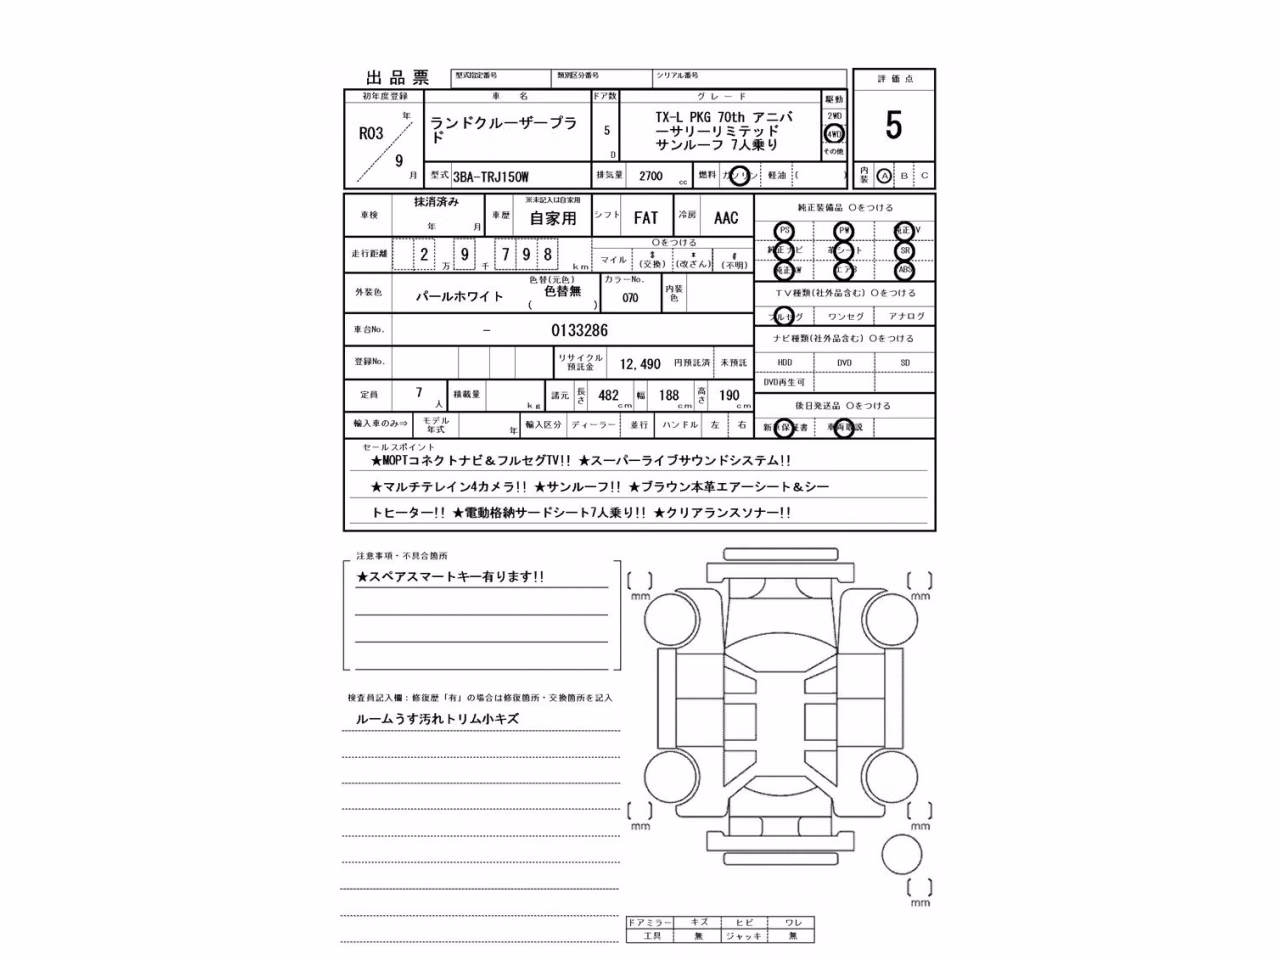 出品票
型式指定番号 類別区分番号 シリアル番号
評価点
5
内装 A B C
初年度登録 車名 ドア数 グレード 駆動
R03 年 9 月
ランドクルーザープラ
ド
5 D
TX-L PKG 70th アニバ
ーサリーリミテッド
サンルーフ 7人乗り
2WD
4WD
その他
型式 3BA-TRJ150W 排気量 2700 cc 燃料 ガソリン 軽油 ( )
車検 抹消済み 年 月 車歴 ※未記入は自家用 自家用 シフト FAT 冷房 AAC
走行距離 2 万 9 千 7 9 8 km
○をつける
マイル $ (交換) * (改ざん) # (不明)
外装色 パールホワイト 色替(元色) 色替無 ( ) カラーNo. 070 内装色
車台No. - 0133286
登録No. リサイクル預託金 12,490 円預託済 未預託
定員 7 人 積載量 kg 諸元 長さ 482 cm 幅 188 cm 高さ 190 cm
輸入車のみ⇒ モデル年式 年 輸入区分 ディーラー 並行 ハンドル 左 右
純正装備品 ○をつける
PS PW 純正TV
純正ナビ 革シート SR
純正AW エアB ABS
TV種類(社外品含む) ○をつける
フルセグ ワンセグ アナログ
ナビ種類(社外品含む) ○をつける
HDD DVD SD
DVD再生可
後日発送品 ○をつける
新車保証書 車両取説
セールスポイント
★MOPTコネクトナビ&フルセグTV!! ★スーパーライブサウンドシステム!!
★マルチテレイン4カメラ!! ★サンルーフ!! ★ブラウン本革エアーシート&シー
トヒーター!! ★電動格納サードシート7人乗り!! ★クリアランスソナー!!
注意事項・不具合箇所
★スペアスマートキー有ります!!
検査員記入欄:修復歴「有」の場合は修復箇所・交換箇所を記入
ルームうす汚れトリム小キズ
mm
mm
mm
mm
mm
ドアミラー キズ ヒビ ワレ
工具 無 ジャッキ 無